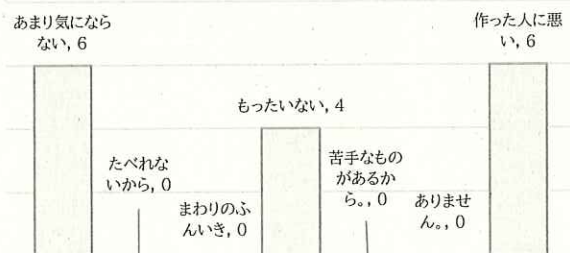 あまり気になら
ない, 6
たべれな
いから, 0
まわりのふ
んいき, 0
もったいない, 4
苦手なもの
があるか
ら。, 0
ありませ
ん。, 0
作った人に悪
い, 6